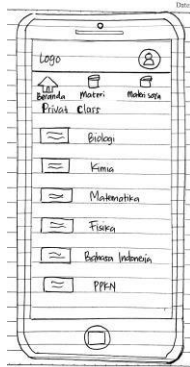 Date
Logo
Beranda Materi Materi saya
Privat Class
Biologi
Kimia
Matematika
Fisika
Bahasa Indonesia
PPKN